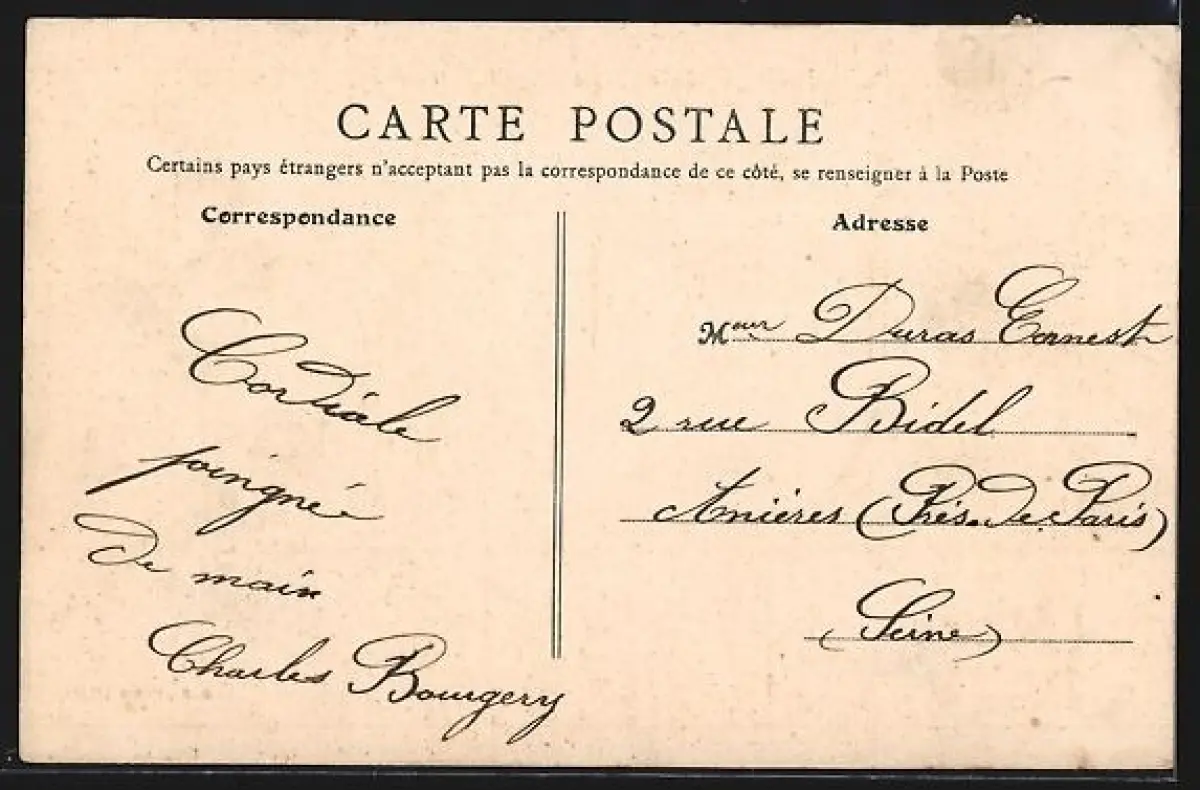 CARTE POSTALE
Certains pays étrangers n'acceptant pas la correspondance de ce côté, se renseigner à la Poste
Correspondance
Cordiale
poingné
de main
Charles Bourgery
Adresse
Meur Duras Ernest
2 rue Bidel
Anières (Près de Paris)
(Seine)